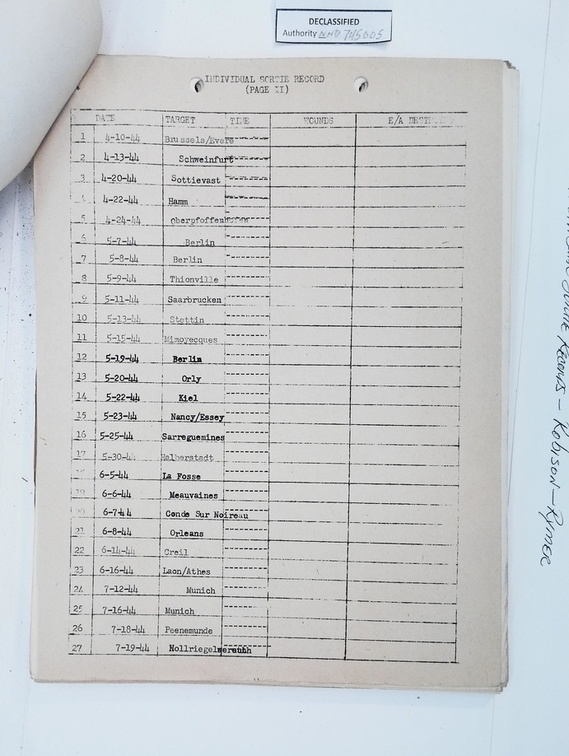 DECLASSIFIED
Authority NND 745005
INDIVIDUAL SORTIE RECORD
(PAGE II)
DATE TARGET TIME WOUNDS E/A
1 4-10-44 Brussels/Evere
2 4-13-44 Schweinfurt
3 4-20-44 Sottievast
4 4-22-44 Hamm
5 4-24-44 Oberpfoffenhofen
6 5-7-44 Berlin
7 5-8-44 Berlin
8 5-9-44 Thionville
9 5-11-44 Saarbrucken
10 5-13-44 Stettin
11 5-15-44 Mimoyecques
12 5-19-44 Berlin
13 5-20-44 Orly
14 5-22-44 Kiel
15 5-23-44 Nancy/Essey
16 5-25-44 Sarreguemines
17 5-30-44 Halberstadt
6-5-44 La Fosse
19 6-6-44 Meauvaines
20 6-7-44 Conde Sur Noireau
21 6-8-44 Orleans
22 6-14-44 Creil
23 6-16-44 Laon/Athes
24 7-12-44 Munich
25 7-16-44 Munich
26 7-18-44 Peenemunde
27 7-19-44
Records - Robison - Rymer